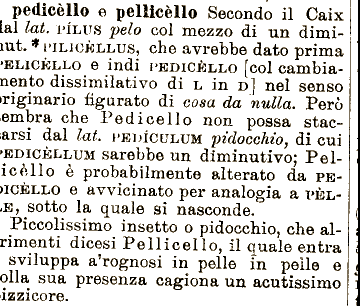 pedicèllo e pellicèllo Secondo il Caix
dal lat. PÍLUS pelo col mezzo di un dimi-
nut. *PILICÈLLUS, che avrebbe dato prima
PELICÈLLO e indi PEDICÈLLO [col cambia-
mento dissimilativo di L in D] nel senso
originario figurato di cosa da nulla. Però
sembra che Pedicello non possa stac-
carsi dal lat. PEDÍCULUM pidocchio, di cui
PEDICÈLLUM sarebbe un diminutivo; Pel-
licèllo è probabilmente alterato da PE-
DICÈLLO e avvicinato per analogia a PÈL-
LE, sotto la quale si nasconde.
Piccolissimo insetto o pidocchio, che al-
trimenti dicesi Pellicello, il quale entra
sviluppa a'rognosi in pelle in pelle e
colla sua presenza cagiona un acutissimo
pizzicore.